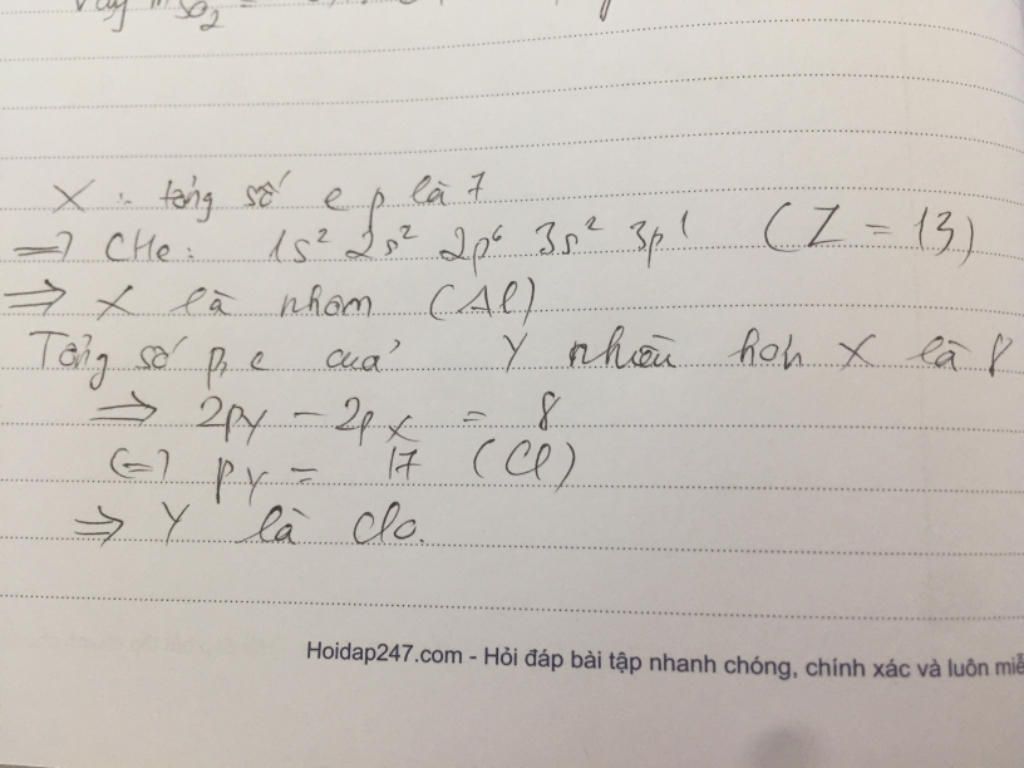 Vậy m SO₂ =
X : tổng số e p là 7
=> CHe: 1s² 2s² 2p⁶ 3s² 3p¹ (Z = 13)
=> X là nhôm (Al)
Tổng số p, e của Y nhiều hơn X là 8
=> 2py - 2px = 8
(=) py = 17 (Cl)
=> Y là clo.
Hoidap247.com - Hỏi đáp bài tập nhanh chóng, chính xác và luôn miễ